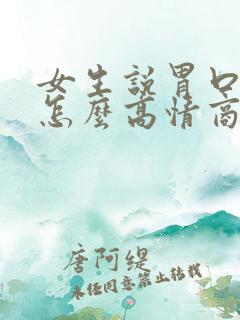 女生說胃口
怎麼高情商
唐阿緹
未经同意禁止转载